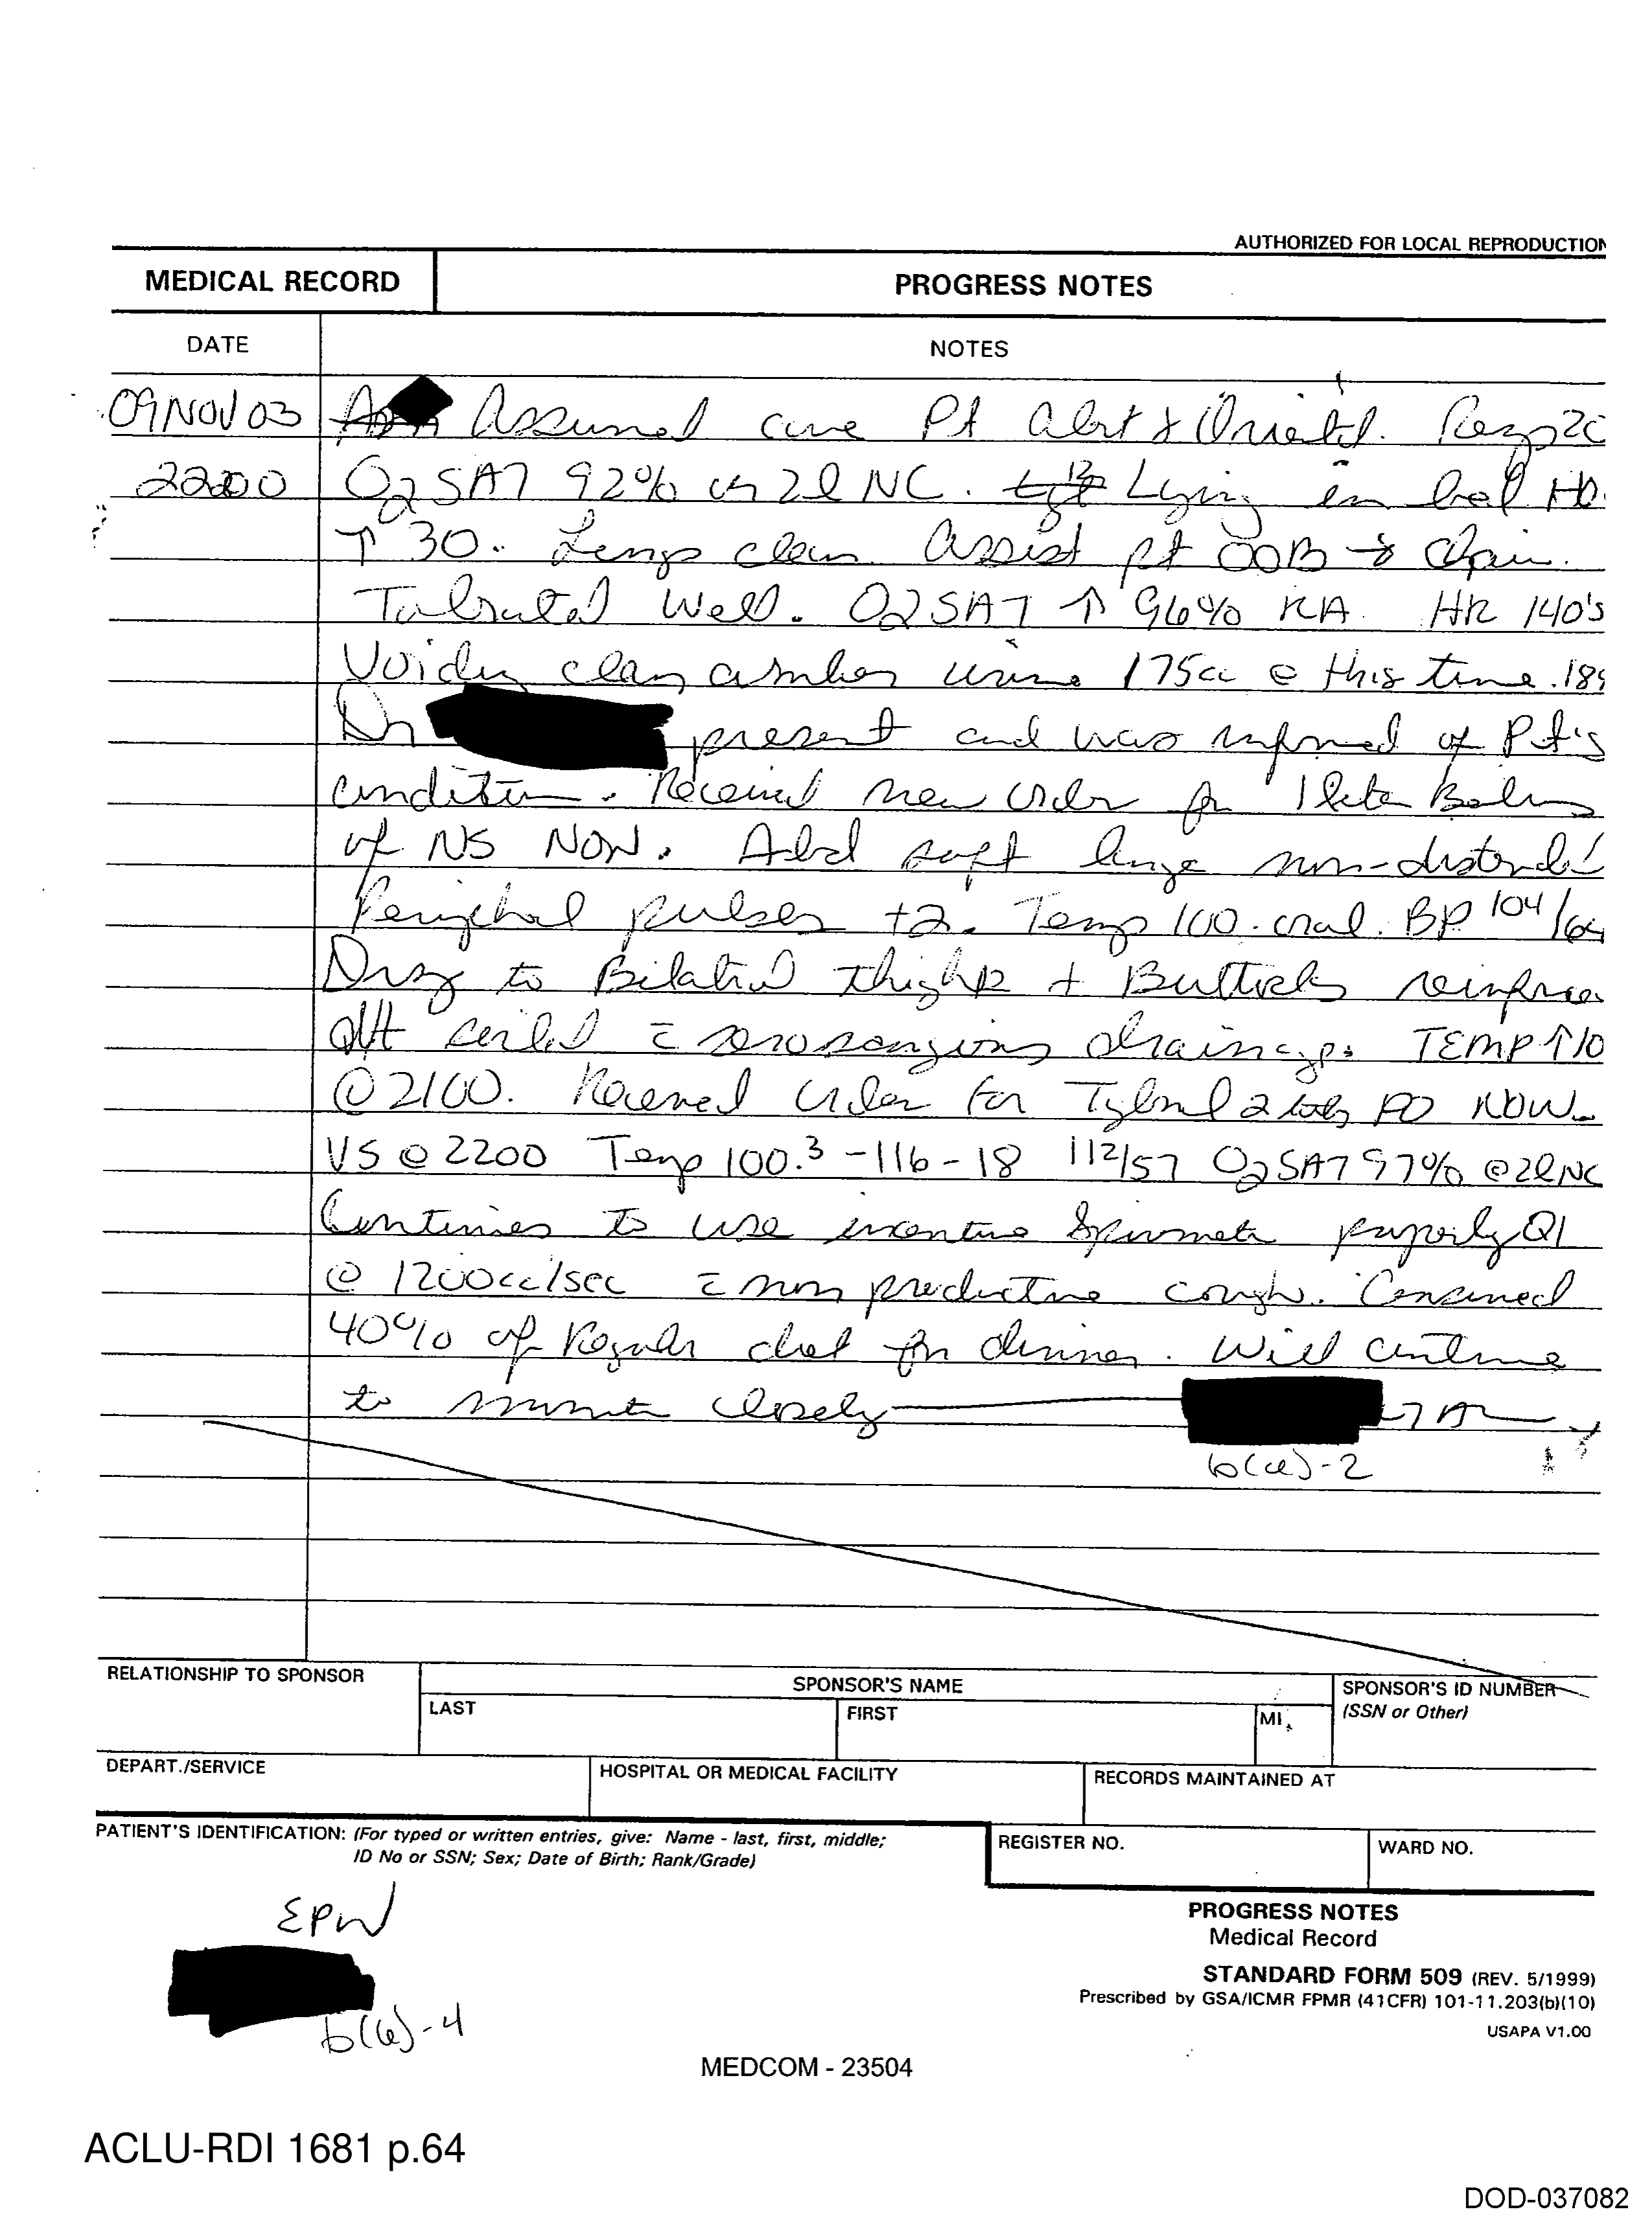 AUTHORIZED FOR LOCAL REPRODUCTION
MEDICAL RECORD
PROGRESS NOTES
DATE
NOTES
09 NOV 03 Assumed care Pt alert & Orientd. Resp 20
2200 O2 SAT 92% on 2l NC. Lying in bed
↑ 30. Lungs clear. Assist pt OOB → chair.
Tolrated Well. O2 SAT ↑ 96% RA. HR 140's
Voiding clear amber urine 175cc @ this time.
Dr present and was informed of Pt's
condition. Received new order for 1 liter Bolus
of NS NOW. Abd soft large non-distended
Peripheral pulses +2. Temp 100. oral. BP 104/64
Drsg to Bilatral thighs + Buttocks reinforce
c̄ serosangious drainage. TEMP ↑10
@ 2100. Received order for Tylenol 2 tabs PO NOW.
VS @ 2200 Temp 100.3 -116-18 112/57 O2 SAT 97% @ 2l NC
Continues to use incentive Spirometer properly Q1
@ 1200cc/sec c̄ non productive cough. Consumed
40% of Regular diet for dinner. Will continue
to monitor closely
b(6)-2
RELATIONSHIP TO SPONSOR
SPONSOR'S NAME
LAST
FIRST
MI
SPONSOR'S ID NUMBER
(SSN or Other)
DEPART./SERVICE
HOSPITAL OR MEDICAL FACILITY
RECORDS MAINTAINED AT
PATIENT'S IDENTIFICATION: (For typed or written entries, give: Name - last, first, middle;
ID No or SSN; Sex; Date of Birth; Rank/Grade)
REGISTER NO.
WARD NO.
EPW
b(6)-4
PROGRESS NOTES
Medical Record
STANDARD FORM 509 (REV. 5/1999)
Prescribed by GSA/ICMR FPMR (41CFR) 101-11.203(b)(10)
USAPA V1.00
MEDCOM - 23504
ACLU-RDI 1681 p.64
DOD-037082